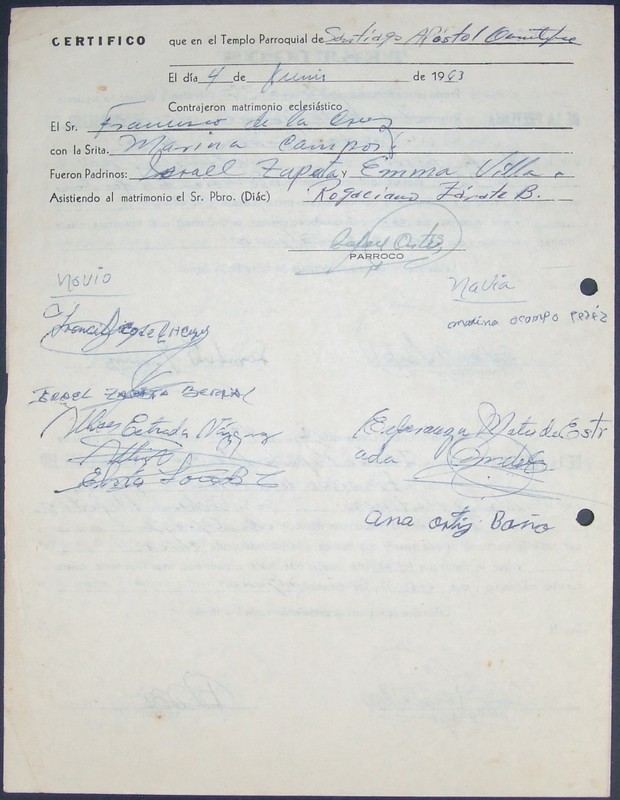 CERTIFICO que en el Templo Parroquial de Santiago Apóstol
El día 4 de Junio de 1963
Contrajeron matrimonio eclesiástico
El Sr. Francisco de la Cruz
con la Srita. Marina Campos
Fueron Padrinos: Israel Zapata y Emma Villa
Asistiendo al matrimonio el Sr. Pbro. (Diác) Rogaciano Zapata B.
PARROCO
Novio
Navia
marina ocampo Peréz
ISRAEL ZAPATA BERNAL
Ulises Estrada Vázquez
Esperanza Mata de Estr
ada
ana ortiz Baño